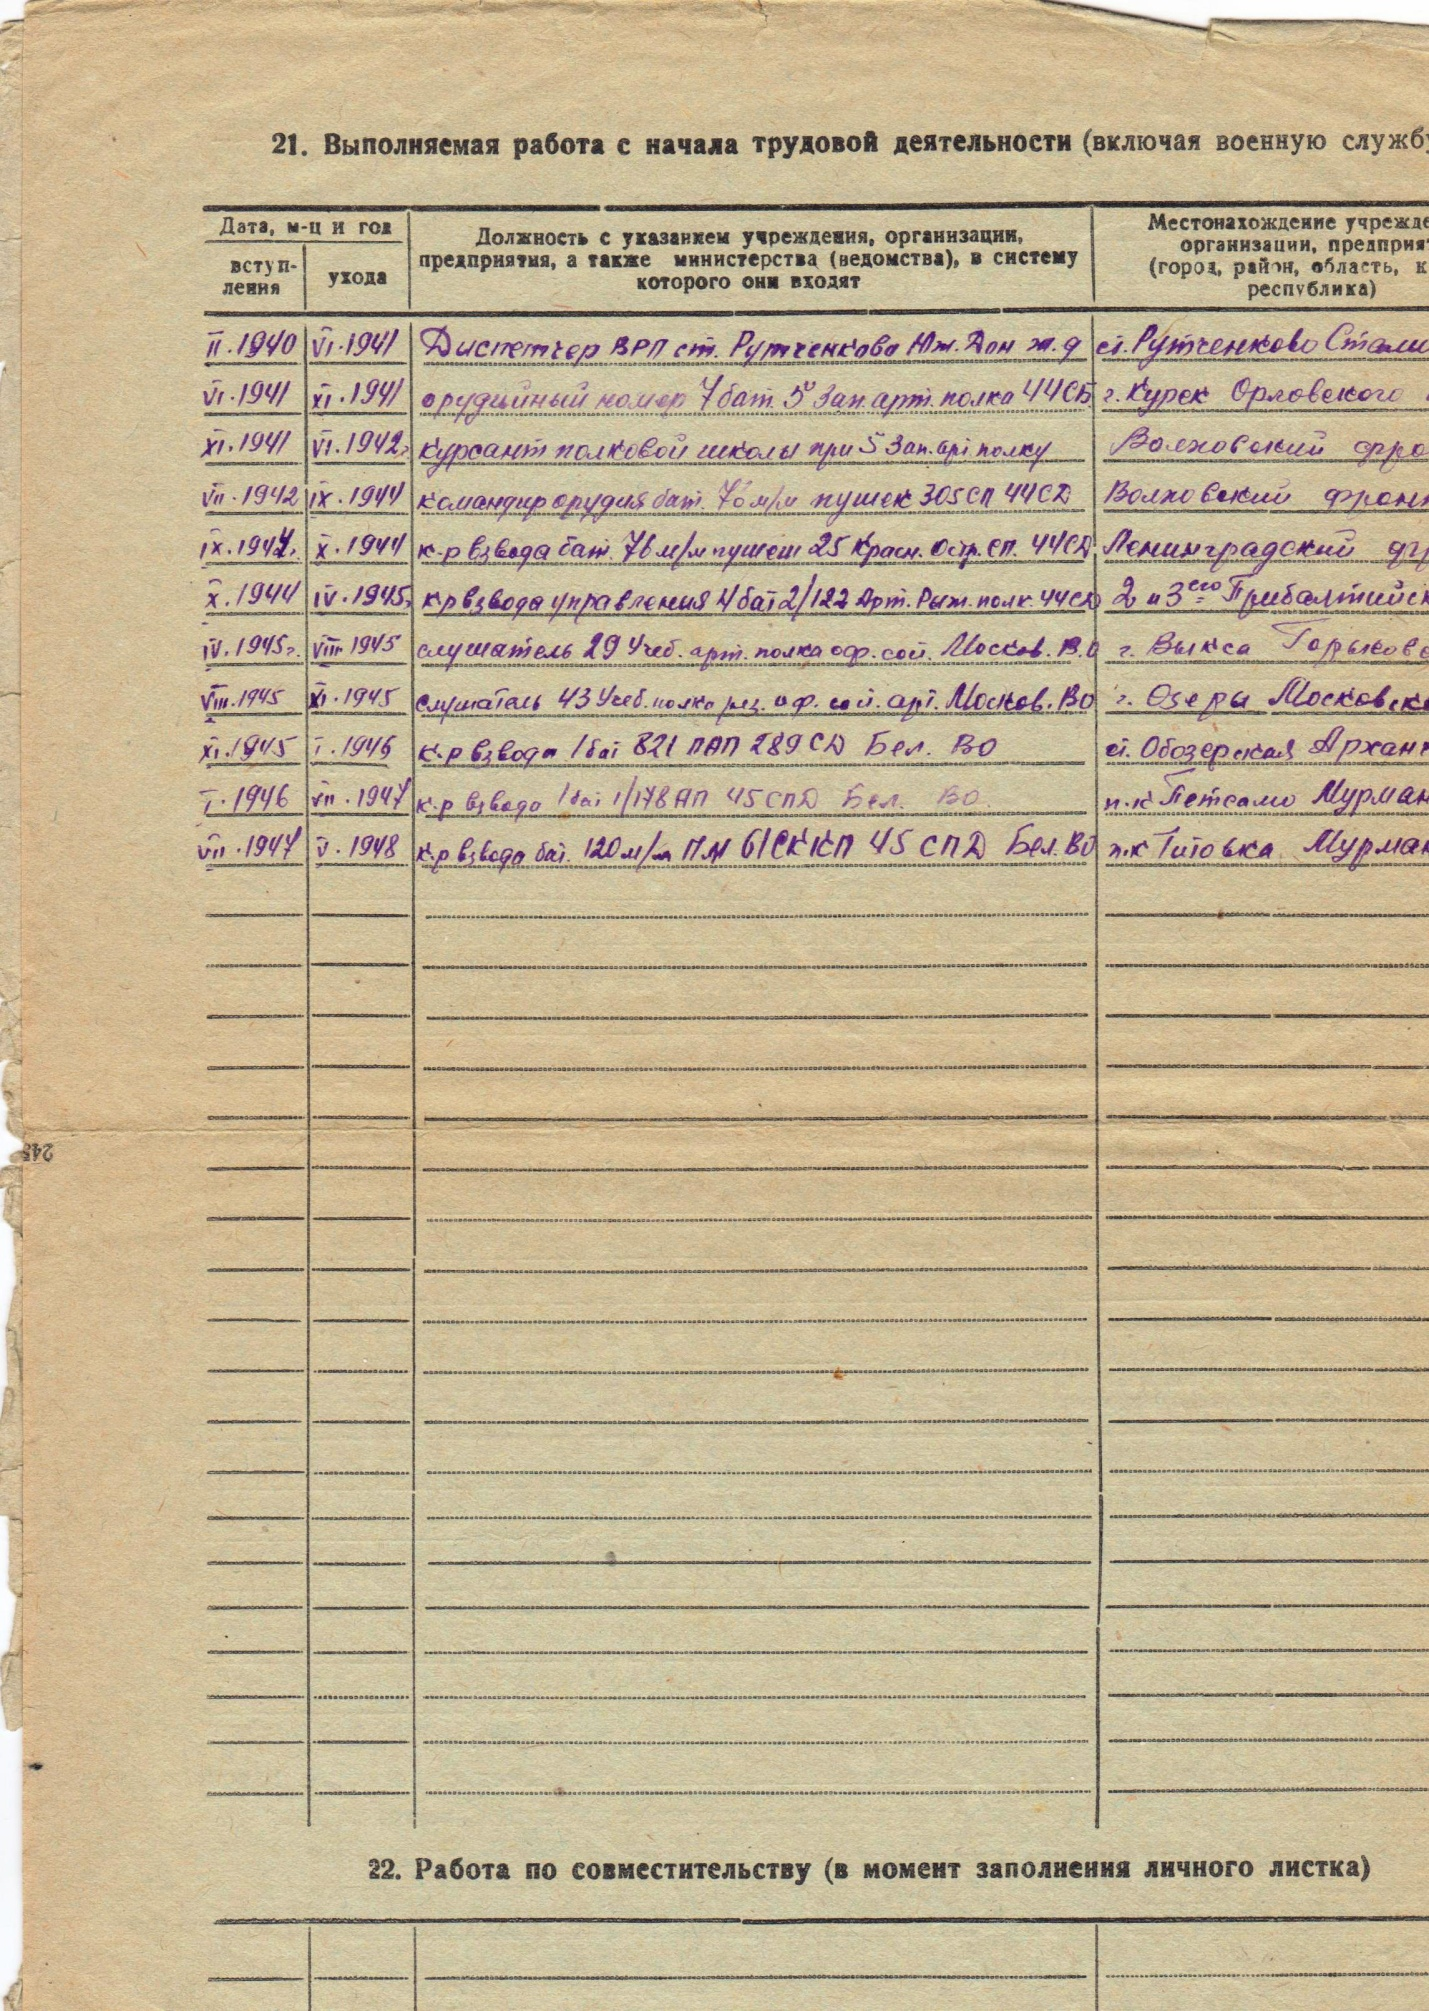 21. Выполняемая работа с начала трудовой деятельности (включая военную службу
Дата, м-ц и год
вступ-
ления
ухода
Должность с указанием учреждения, организации,
предприятия, а также министерства (ведомства), в систему
которого они входят
Местонахождение учрежде
организации, предприят
(город, район, область, к
республика)
II.1940 VI.1941 Диспетчер ВРП ст. Рутченково Юж. Дон ж.д ст. Рутченково Стали
VI.1941 XI.1941 орудийный номер 7 бат. 5 Зап. арт. полка 44СБ г. Курск Орловского
XI.1941 VI.1942г курсант полковой школы при 5 Зап. арт полку Волховский фро
VII.1942 IX.1944 командир орудия бат. 76 м/м пушек 305 СП 44 СД Волховский фрон
IX.1944г. X.1944 к-р взвода бат. 76 м/м пушек 25 Красн. Остр. СП. 44СД Ленинградский фр
X.1944 IV.1945г к-р взвода управления 4 бат 2/122 Арт. Рыж. полк. 44СД 2 и 3его Прибалтийск
IV.1945г. VIII 1945 слушатель 29 Учеб. арт. полка оф. сост. Москов. В.О г. Выкса Горьковс
VIII.1945 XI.1945 слушатель 43 Учеб. полка рез. оф. сост. арт. Москов. ВО г. Озеры Московск
XI.1945 I.1946 к-р взвода 1 бат 821 ПАП 289 СД Бел. ВО ст. Обозерская Арханг
I.1946 VII.1947 к-р взвода 1 бат 1/178 АП 45 СПД Бел. ВО. п.к Петсамо Мурман
VII.1947 V.1948 к-р взвода бат. 120 м/м ПМ 61 СККП 45 СПД Бел. ВО п.к Титовка Мурман
245
22. Работа по совместительству (в момент заполнения личного листка)